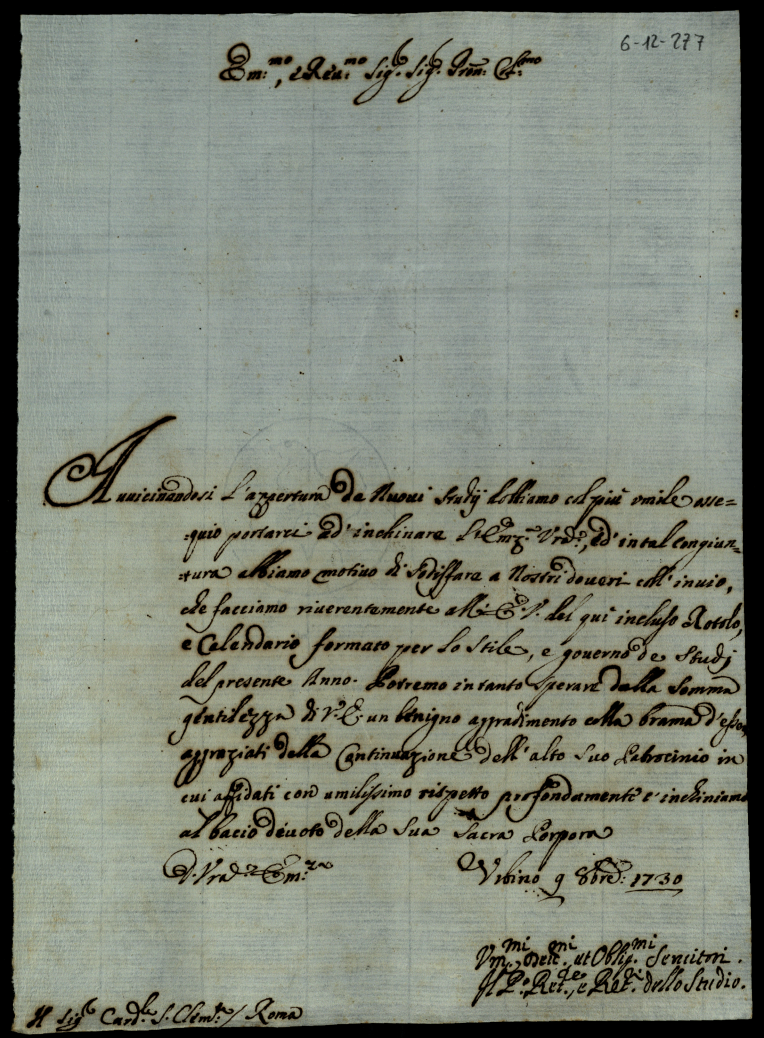 6-12-277
Em:mo, e Reu:mo Sig.r Sig.r Pron: Col:mo
Auuicinandosi l'apertura de Nuoui Studij dobbiamo col più vmile osse=
=quio portarci ad' inchinare l'Em:za Vra, ed' in tal congiun=
=tura abbiamo motiuo di sodisfare a Nostri doueri coll' inuio,
che facciamo riuerentemente all' E. V. del qui incluso Rotolo,
e Calendario formato per lo Stile, e gouerno de Studj
del presente Anno. Potremo intanto sperare dalla somma
gentilezza di V. E. un benigno aggradimento colla brama d'esser
della Continuazione dell' alto Suo Patrocinio in
cui affidati con umilissimo rispetto profondamente c' inchiniamo
al bacio deuoto della Sua Sacra Porpora
D. Vra Em:za Vrbino 9 8bre: 1730
Vm:mi, Deu:mi, et Obbl:mi Seruitori.
Il P. Ret:re, e Ret:ri dello Studio.
Il Sig:r Card:le S. Clem:te / Roma